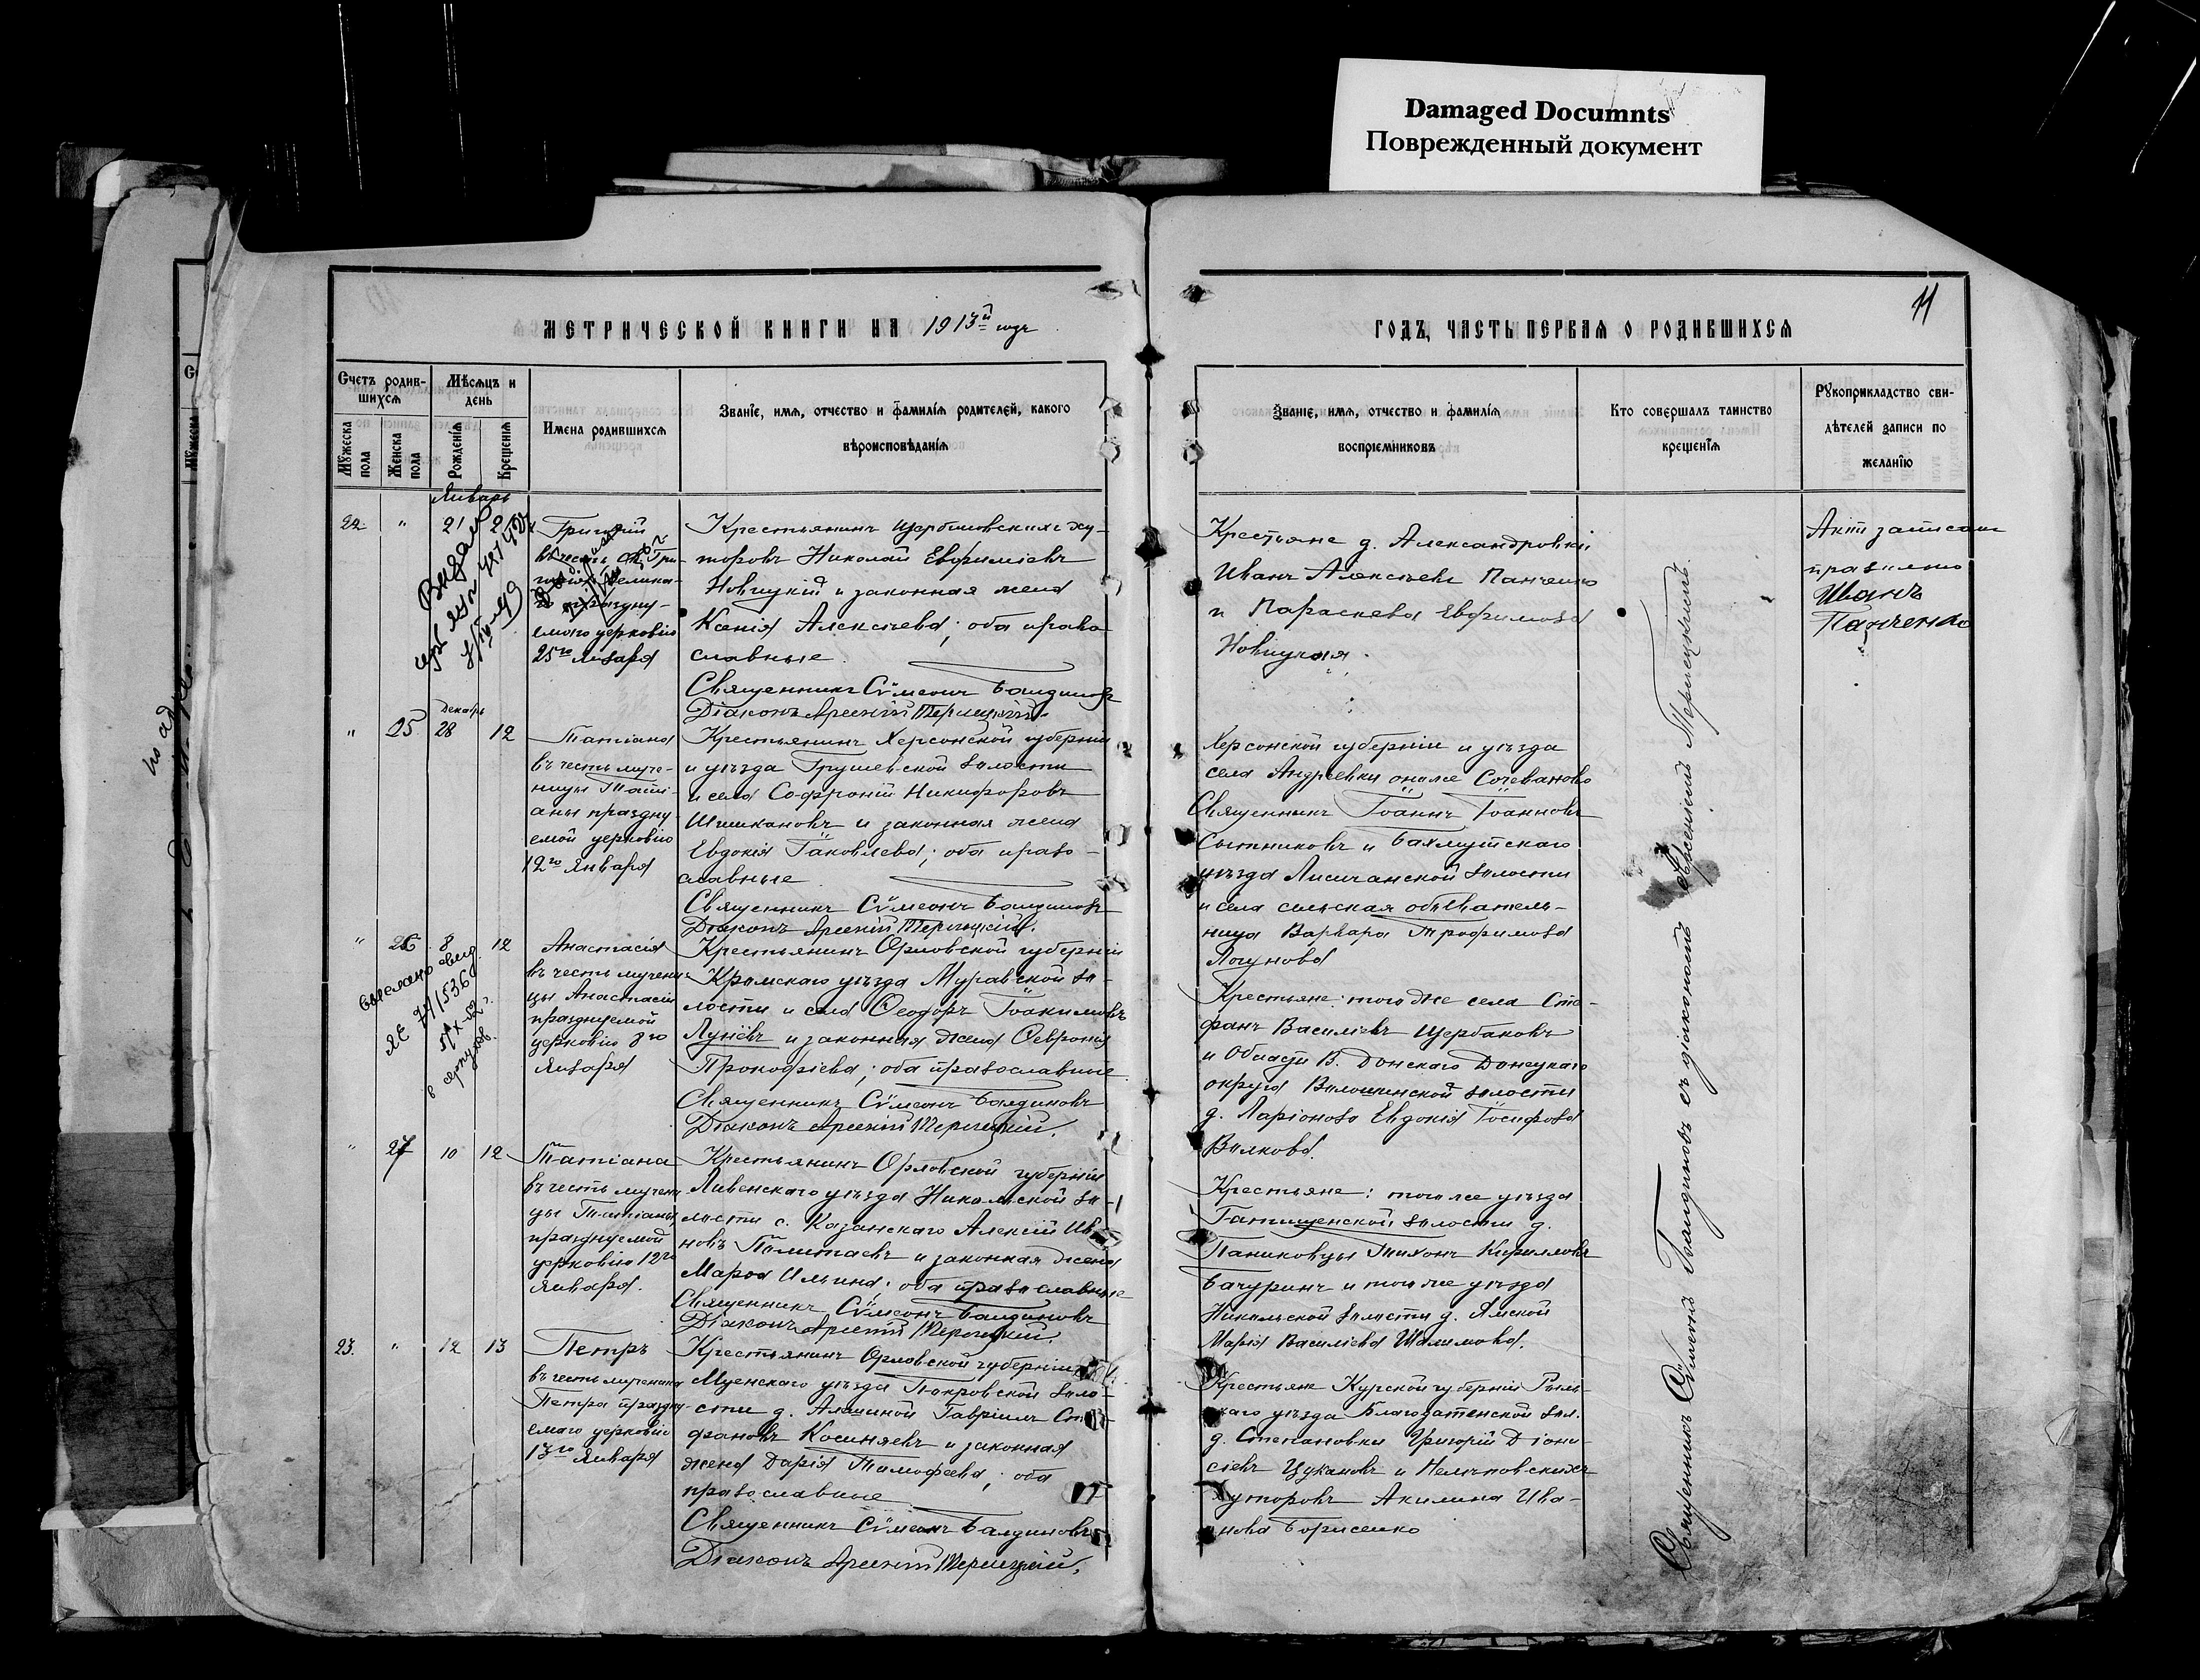 Damaged Documnts
Поврежденный документ
МЕТРИЧЕСКОЙ КНИГИ НА 1913й годъ
ГОДЪ, ЧАСТЬ ПЕРВАЯ О РОДИВШИХСЯ
11
Счетъ родив-
шихся
Мужеска
пола
Женска
пола
Мѣсяцъ и
день
Рожденія
Крещенія
Имена родившихся
Званіе, имя, отчество и фамилія родителей, какого
вѣроисповѣданія
Званіе, имя, отчество и фамилія
воспріемниковъ
Кто совершалъ таинство
крещенія
Рукоприкладство сви-
дѣтелей записи по
желанію
Январь
22
"
21
Григорій
въ честь св. Гри-
горія
праздну-
емаго церковію
25го Января
Крестьянинъ Щербиновскихъ ху-
торовъ Николай Евфиміевъ
Новицкій и законная жена
Ксенія Алексѣева; оба право
славные.
Священникъ Сѵмеонъ Балдиновъ
Діаконъ Арсеній Терлецкій.
Крестьяне д. Александровки
Иванъ Алексѣевъ Панченко
и Параскева Евфимова
Новицкая.
Актъ записанъ
правильно
Иванъ
Панченко
"
25
Декабрь
28
12
Татіана
въ честь муче-
ницы Тати-
аны праздну-
емой церковію
12го Января
Крестьянинъ Херсонской губерніи
и уѣзда Грушевской волости
и села Софроній Никифоровъ
Шишкановъ и законная жена
Евдокія Іаковлева; оба право-
славные
Священникъ Сѵмеонъ Балдиновъ
Діаконъ Арсеній Терлецкій.
Херсонской губерніи и уѣзда
села Андреевки онаже
Священникъ Іоаннъ Іоанновъ
Сытниковъ и Бахмутскаго
уѣзда Лисичанской волости
и села сельская обыватель-
ница Варвара Трофимова
Логунова
"
26
8
12
Анастасія
въ честь мучени-
цы Анастасіи
празднуемой
церковію
Января
Крестьянинъ Орловской губерніи
Кромскаго уѣзда Муравской во-
лости и села Ѳеодоръ Іоакимовъ
Луневъ и законная жена Ѳевронія
Прокофіева; оба православные
Священникъ Сѵмеонъ Балдиновъ
Діаконъ Арсеній Терлецкій.
Крестьяне: того же села Сте-
фанъ Василіевъ Щербаковъ
и Области В. Донскаго Донецкаго
округа Волошинской волости
д. Ларіоново Евдокія Іосифова
Волкова.
"
27
10
12
Татіана
въ честь мучени
цы Татіаны
празднуемой
церковію 12го
Января.
Крестьянинъ Орловской губерніи
Ливенскаго уѣзда Никольской во-
лости с. Казанскаго Алексій Ива
новъ Политаевъ и законная жена
Марѳа Ильина; оба православные
Священникъ Сѵмеонъ Балдиновъ
Діаконъ Арсеній Терлецкій.
Крестьяне: того же уѣзда
волости д.
Паниковцы Тихонъ Кирилловъ
Бачуринъ и того же уѣзда
Никольской волости д. Ямской
Марія Василіева Шалимова.
23.
"
12
13
Петръ
въ честь мученика
Петра праздну-
емаго церковію
13го Января
Крестьянинъ Орловской губерніи
Мценскаго уѣзда Покровской воло-
сти д. Гавріилъ Сте
фановъ Косиняевъ и законная
жена Дарія Тимофеева; оба
православные
Священникъ Сѵмеонъ Балдиновъ
Діаконъ Арсеній Терлецкій.
Крестьяне Курской губерніи Рыль
скаго уѣзда Благодатенской вол.
д. Степановки Григорій Діони-
сіевъ Цукановъ и Нелѣповскихъ
хуторовъ Акилина Ива-
нова Борисенко
Священникъ Сѵмеонъ Балдиновъ съ діакономъ Арсеніемъ Терлецкимъ.